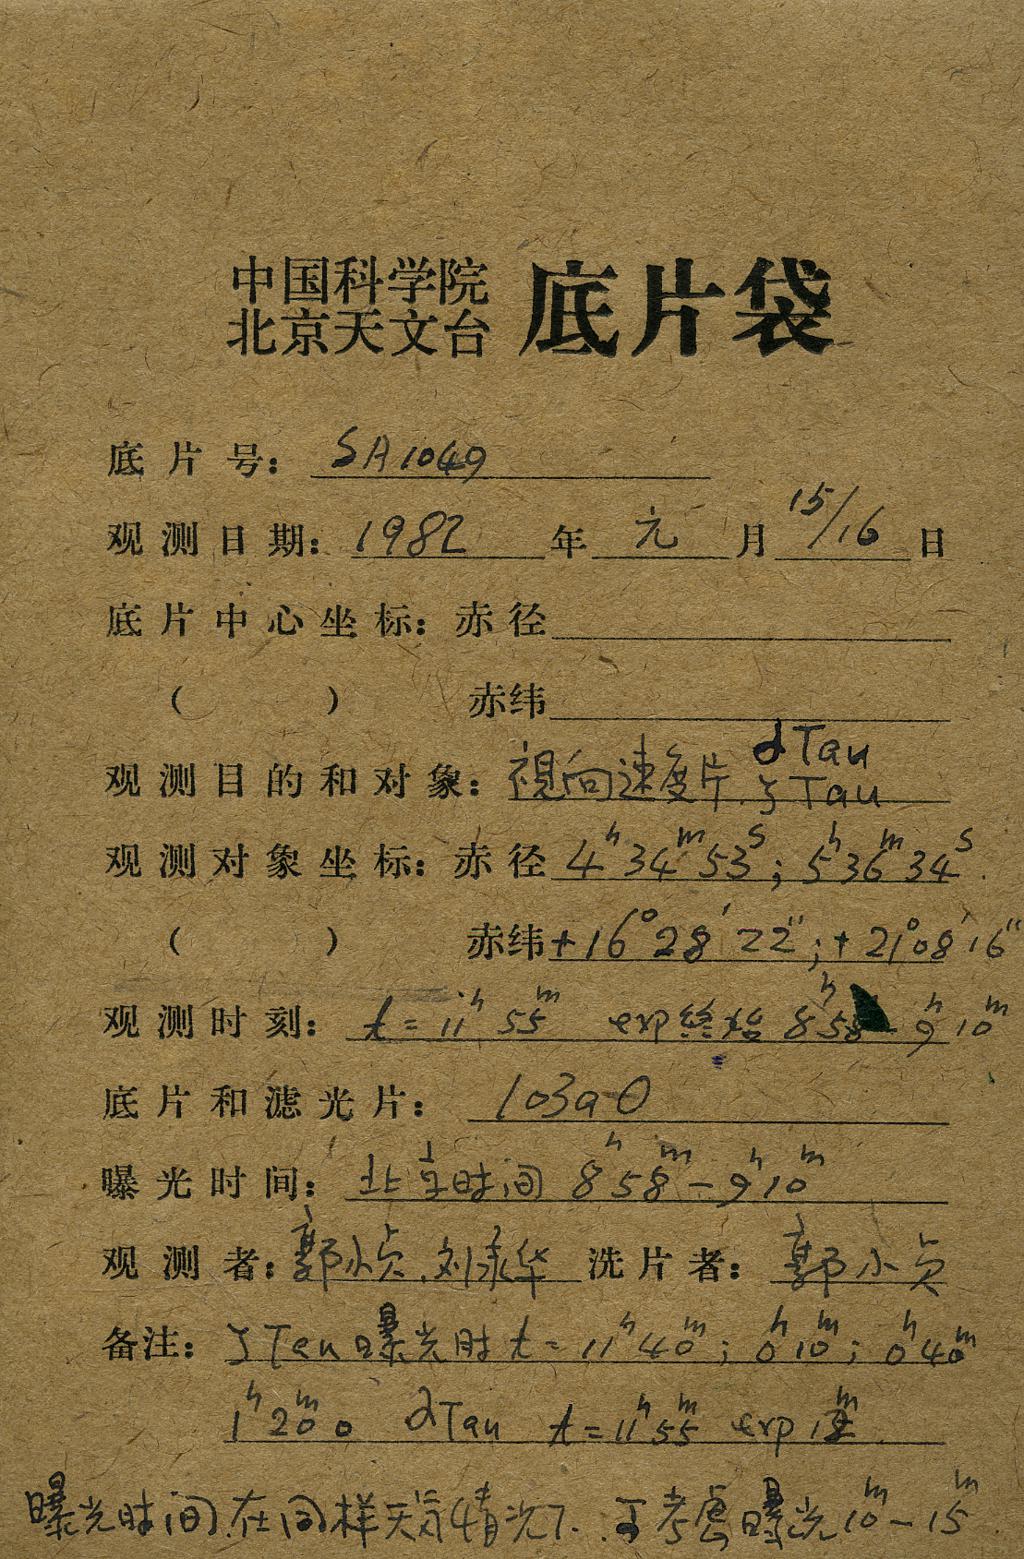 中国科学院
北京天文台 底片袋
底片号: SA1049
观测日期: 1982 年 元 月 15/16 日
底片中心坐标: 赤径
( ) 赤纬
观测目的和对象: 視向速度片 αTau
ζTau
观测对象坐标: 赤径 4h34m53s; 5h36m34s.
( ) 赤纬 +16°28′22″; +21°08′16″
观测时刻: t=11h55m exp终始 8h58 - 9h10m
底片和滤光片: 103aO
曝光时间: 北京时间 8h58m - 9h10m
观测者: 郭小贞. 刘永华 洗片者: 郭小贞
备注: ζTau曝光时 t=11h40m; 0h10m; 0h40m
1h20m。 αTau t=11h55m exp 12m
曝光时间.在同样天气情况下. 可考虑曝光10m-15m.